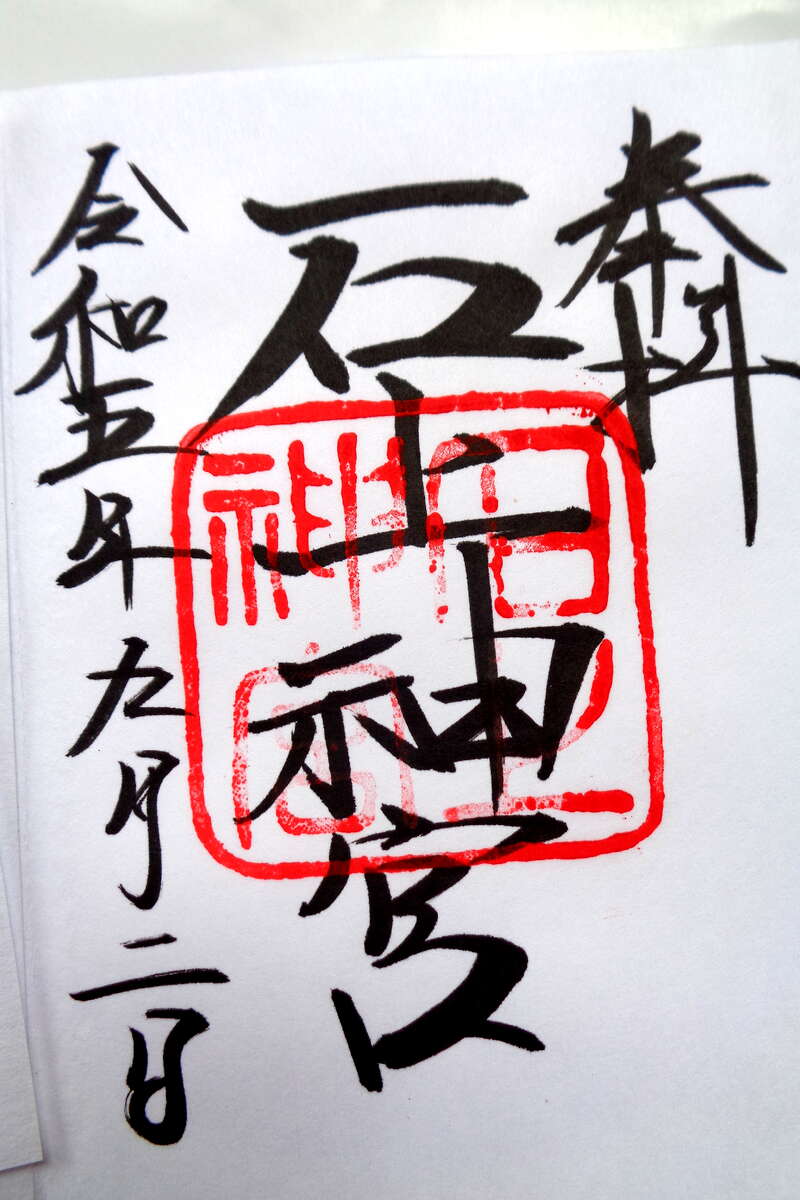 奉拝
石上神宮
令和五年九月二日
石上神宮